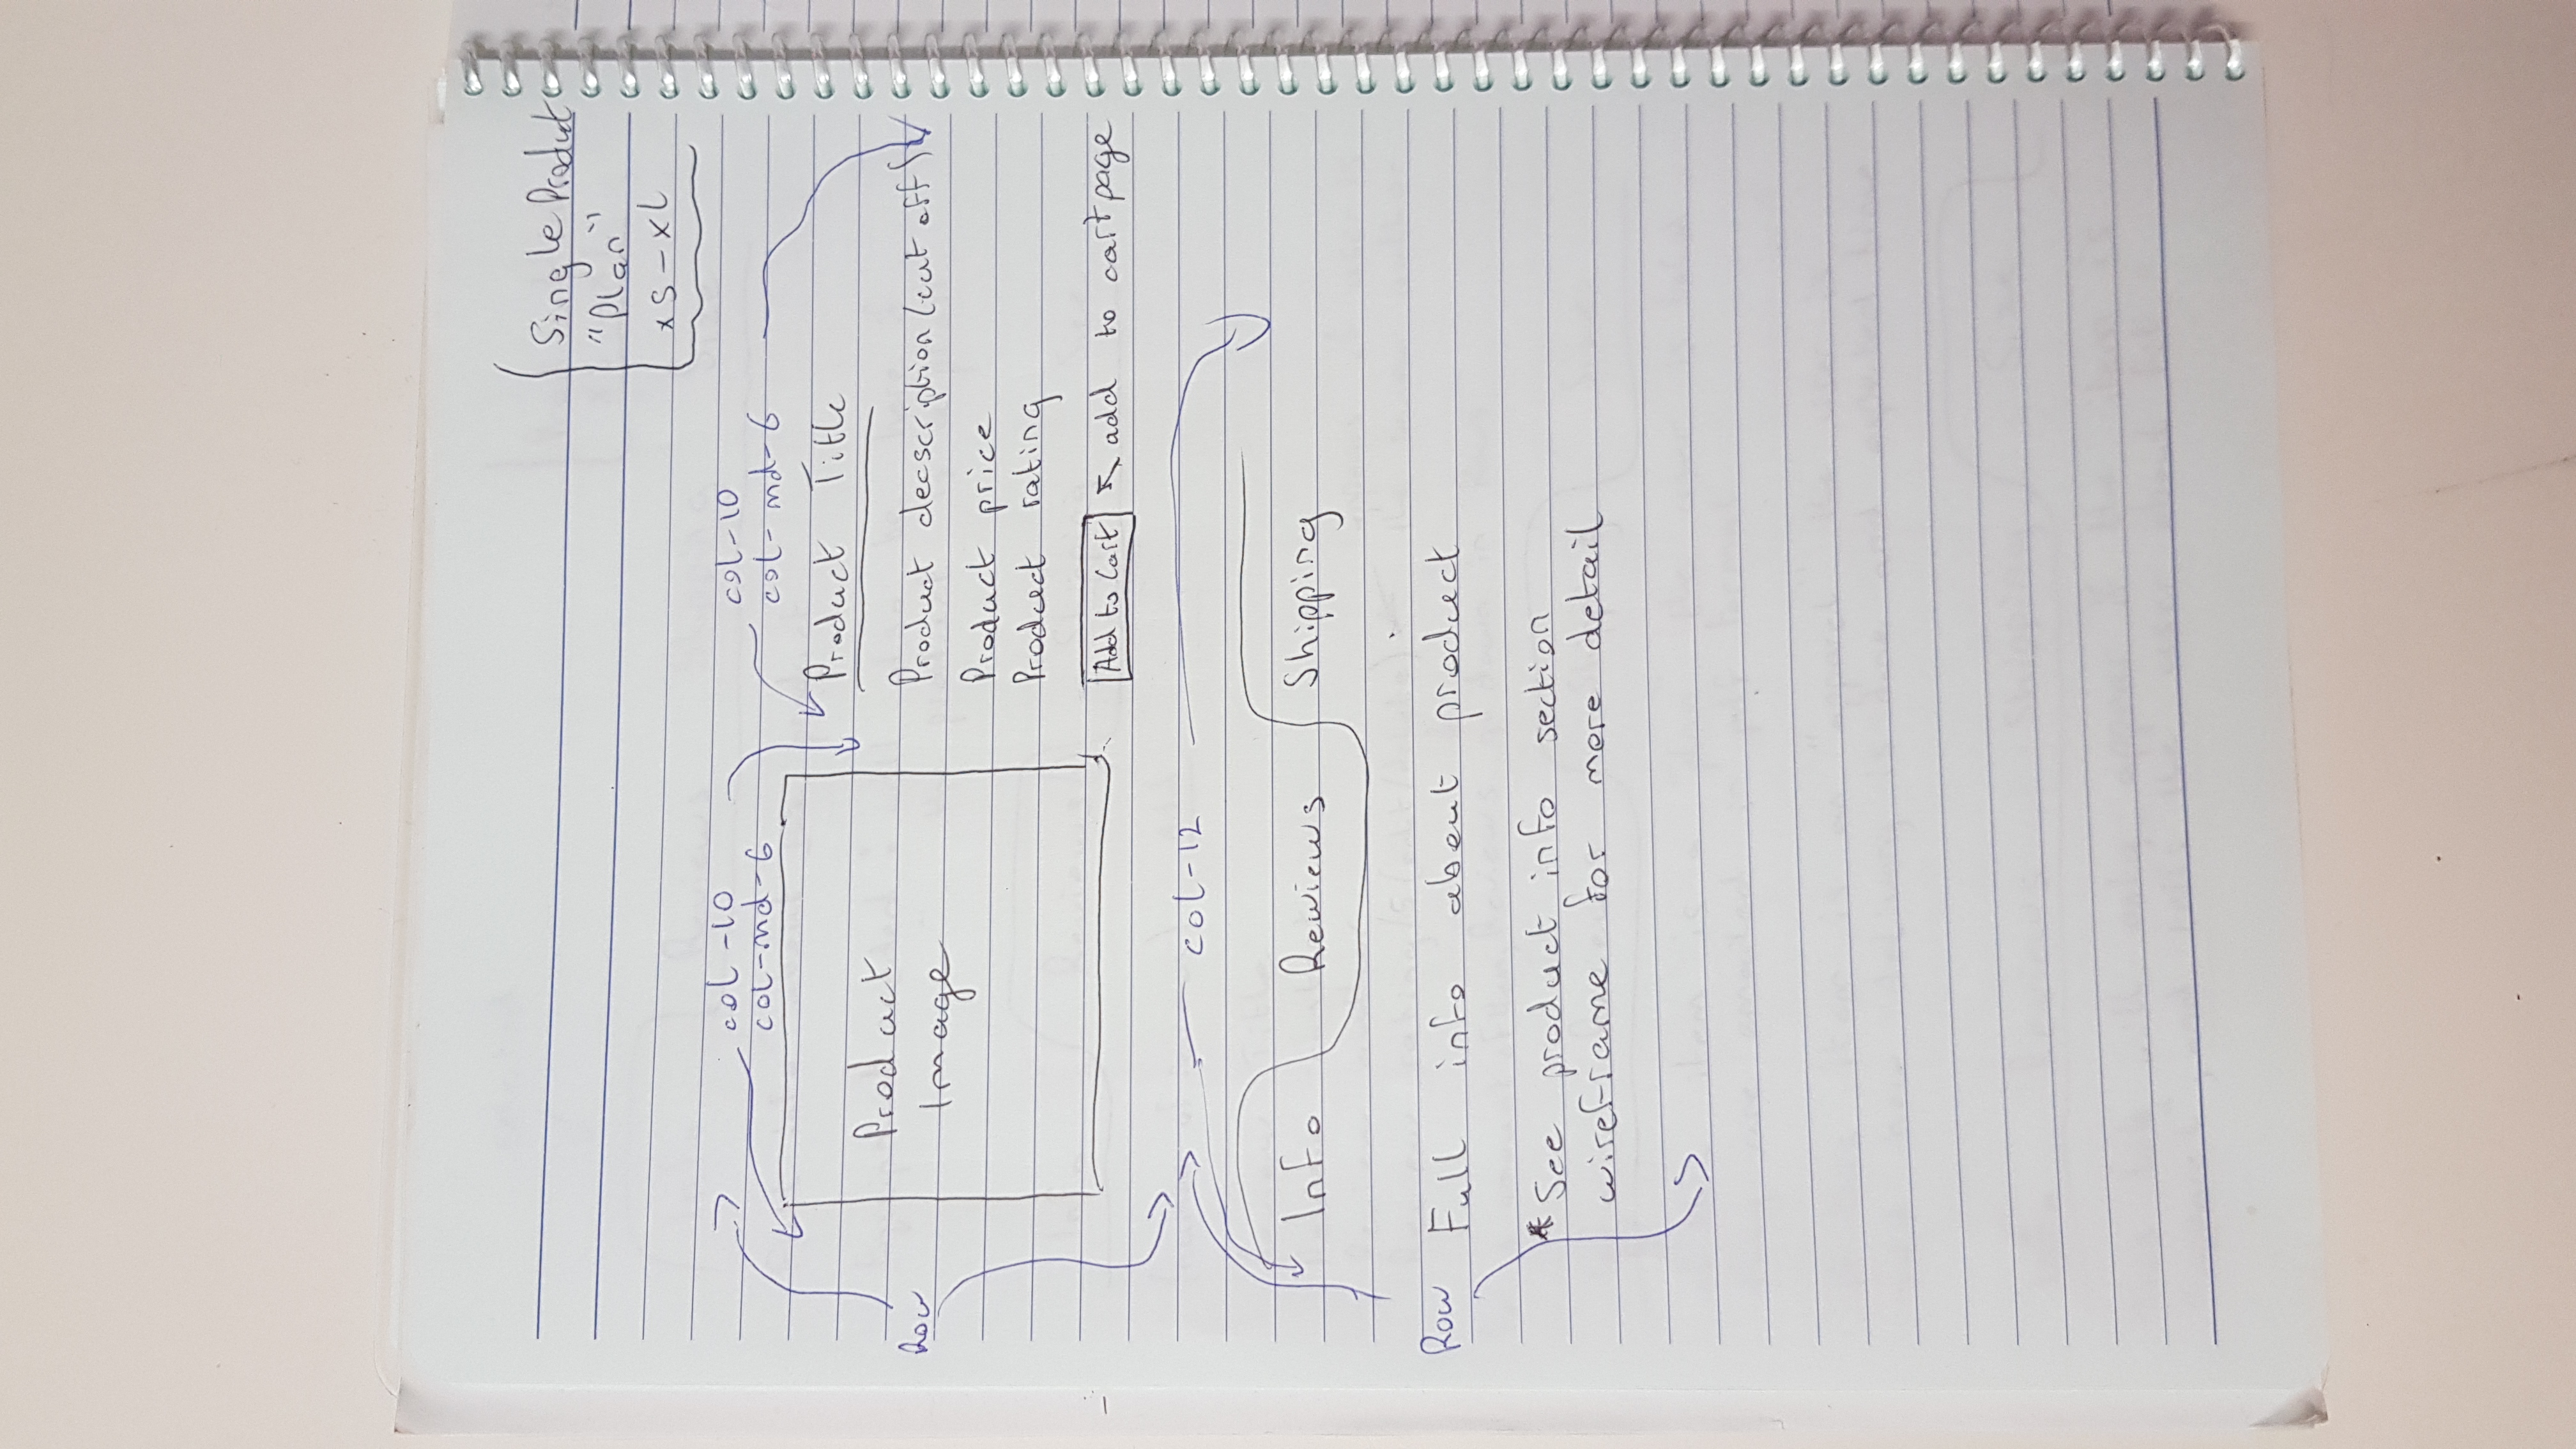 Single Product
"Plan"
xs-xl
col-10
col-md-6
col-10
col-md-6
Row
Product
Image
Product Title
Product decscription (cut off)
Product price
Product rating
Add to Cart
add to cart page
col-12
Info
Rewiews
Shipping
Row
Full info about product
*See product info section
wireframe for more detail